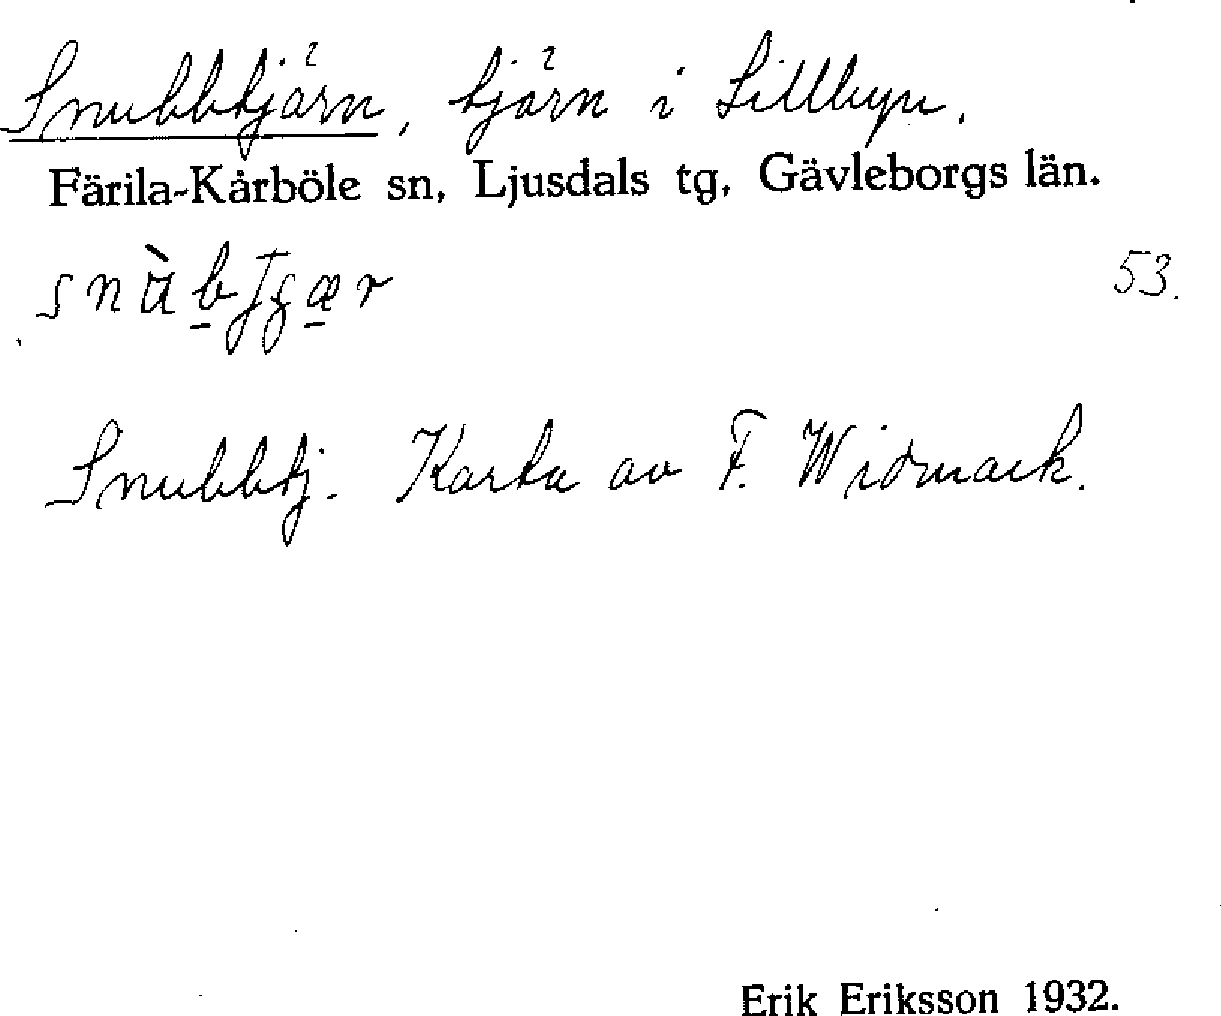 Snubbtjärn, tjärn i Lillbyn.
Färila-Kårböle sn, Ljusdals tg, Gävleborgs län.
53.
Snubbtj. Karta av F. Widmark.
Erik Eriksson 1932.